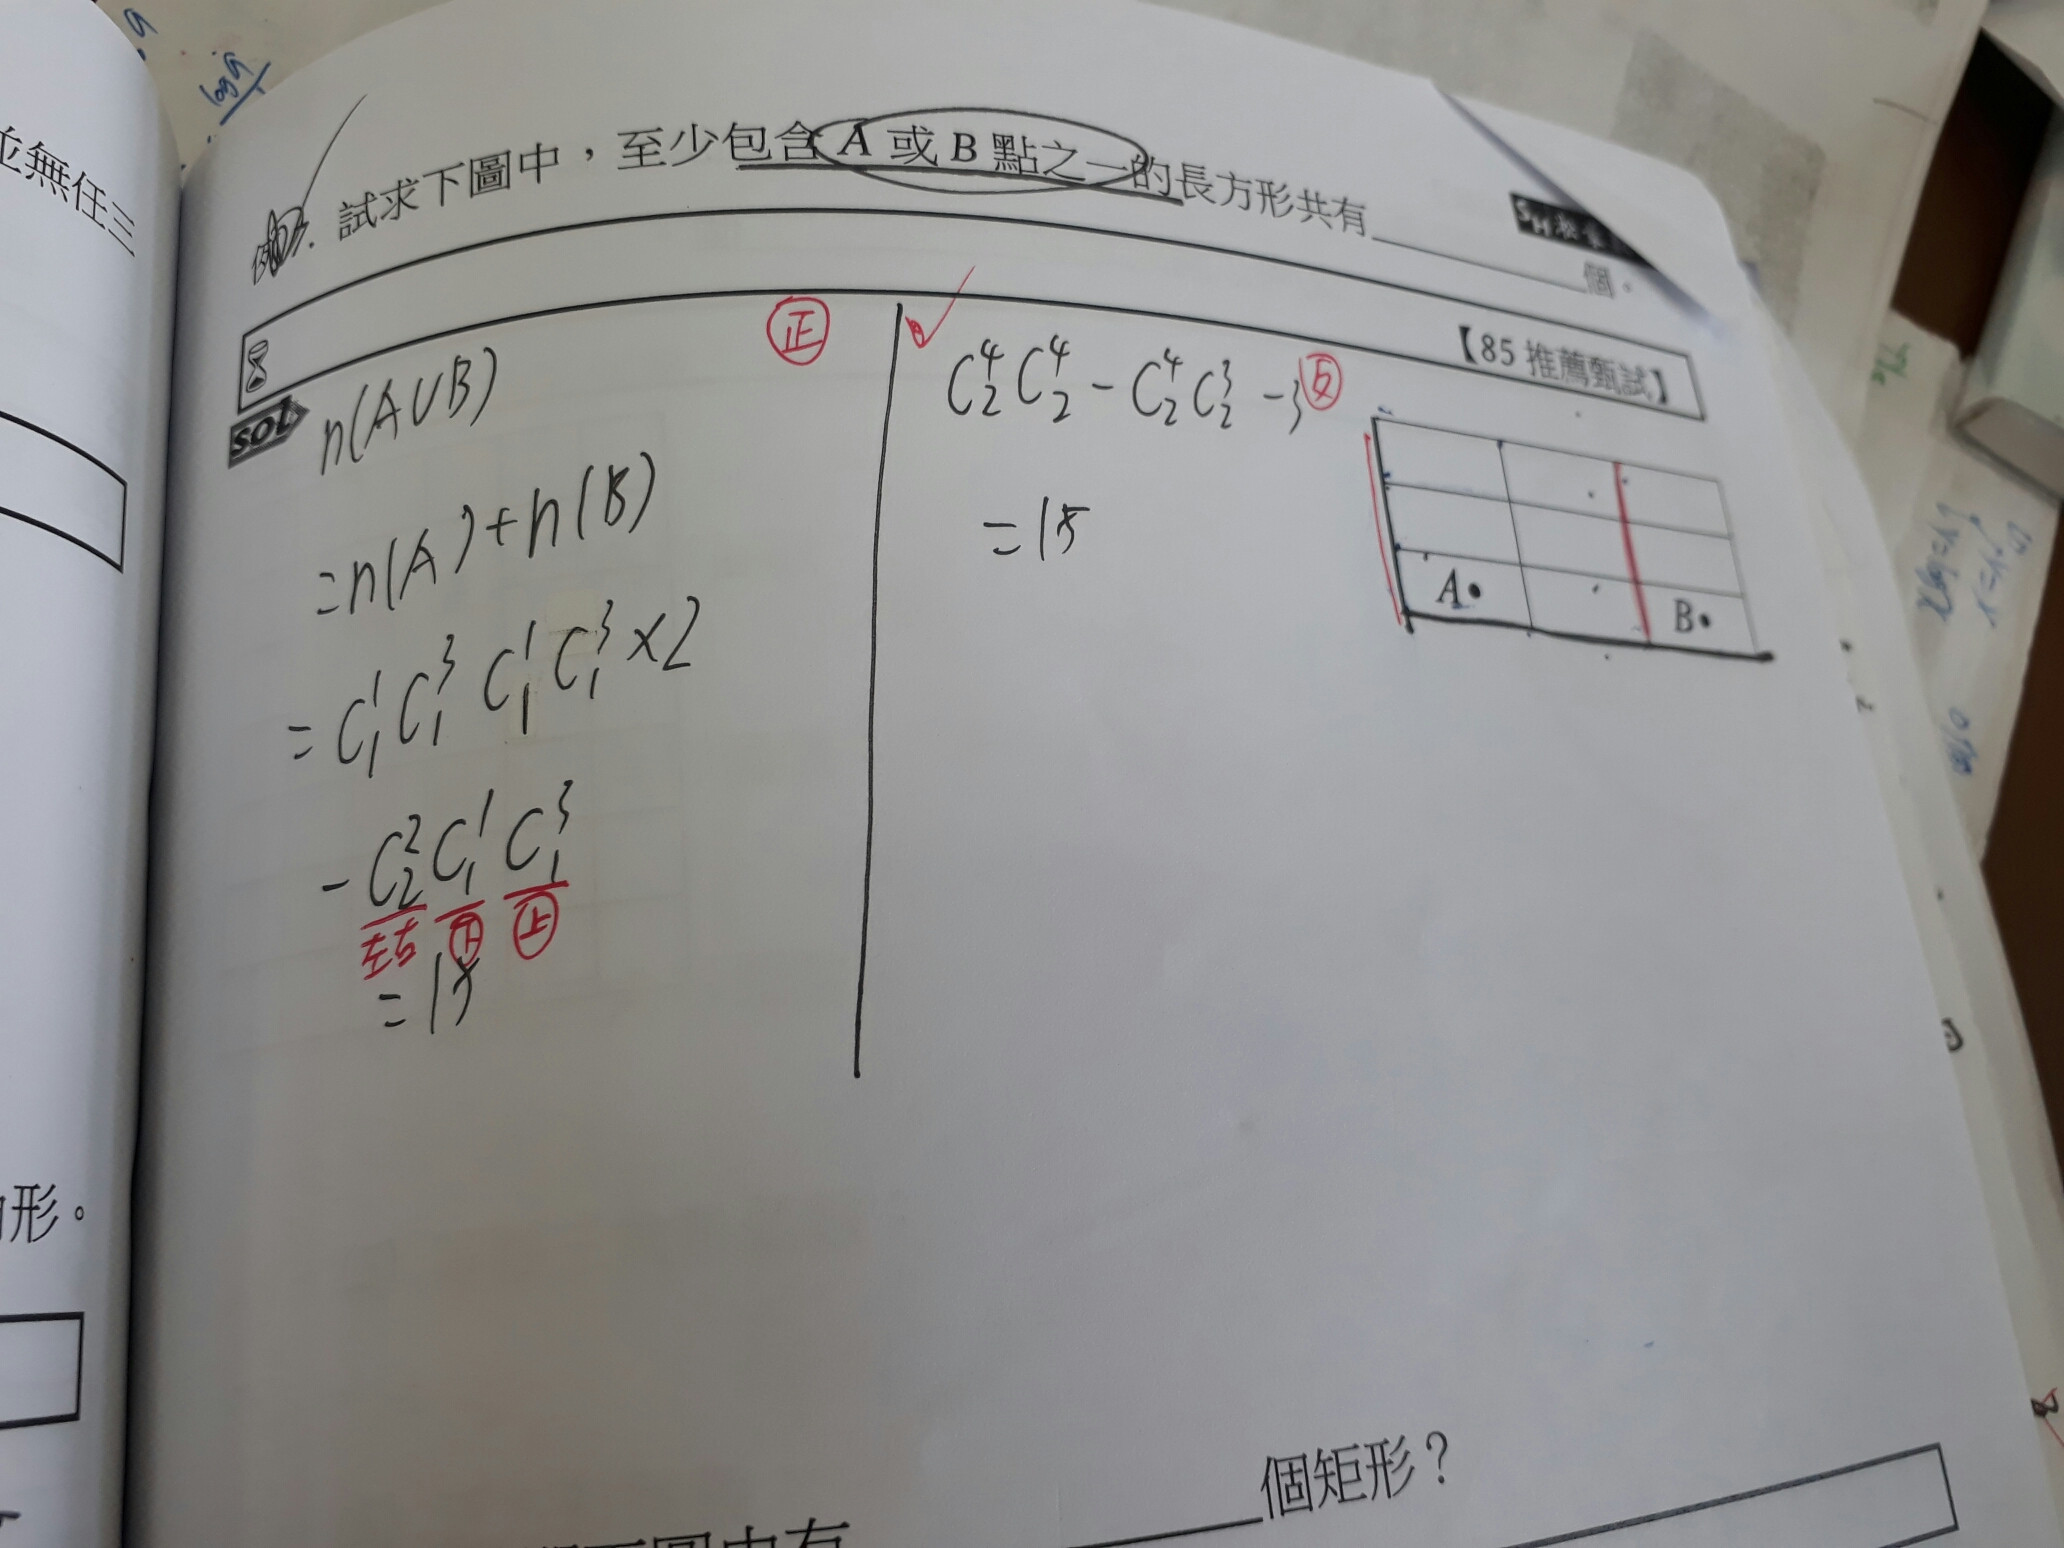 並無任三
log9
例
試求下圖中，至少包含 A 或 B 點之一的長方形共有
個。
【85 推薦甄試】
SOL
正
n(A∪B)
=n(A)+n(B)
=C¹₁C³₁C¹₁C³₁×2
-C²₂C¹₁C³₁
左右 下 上
=15
C⁴₂C⁴₂-C⁴₂C³₂-3
反
=15
A
B
形。
個矩形？